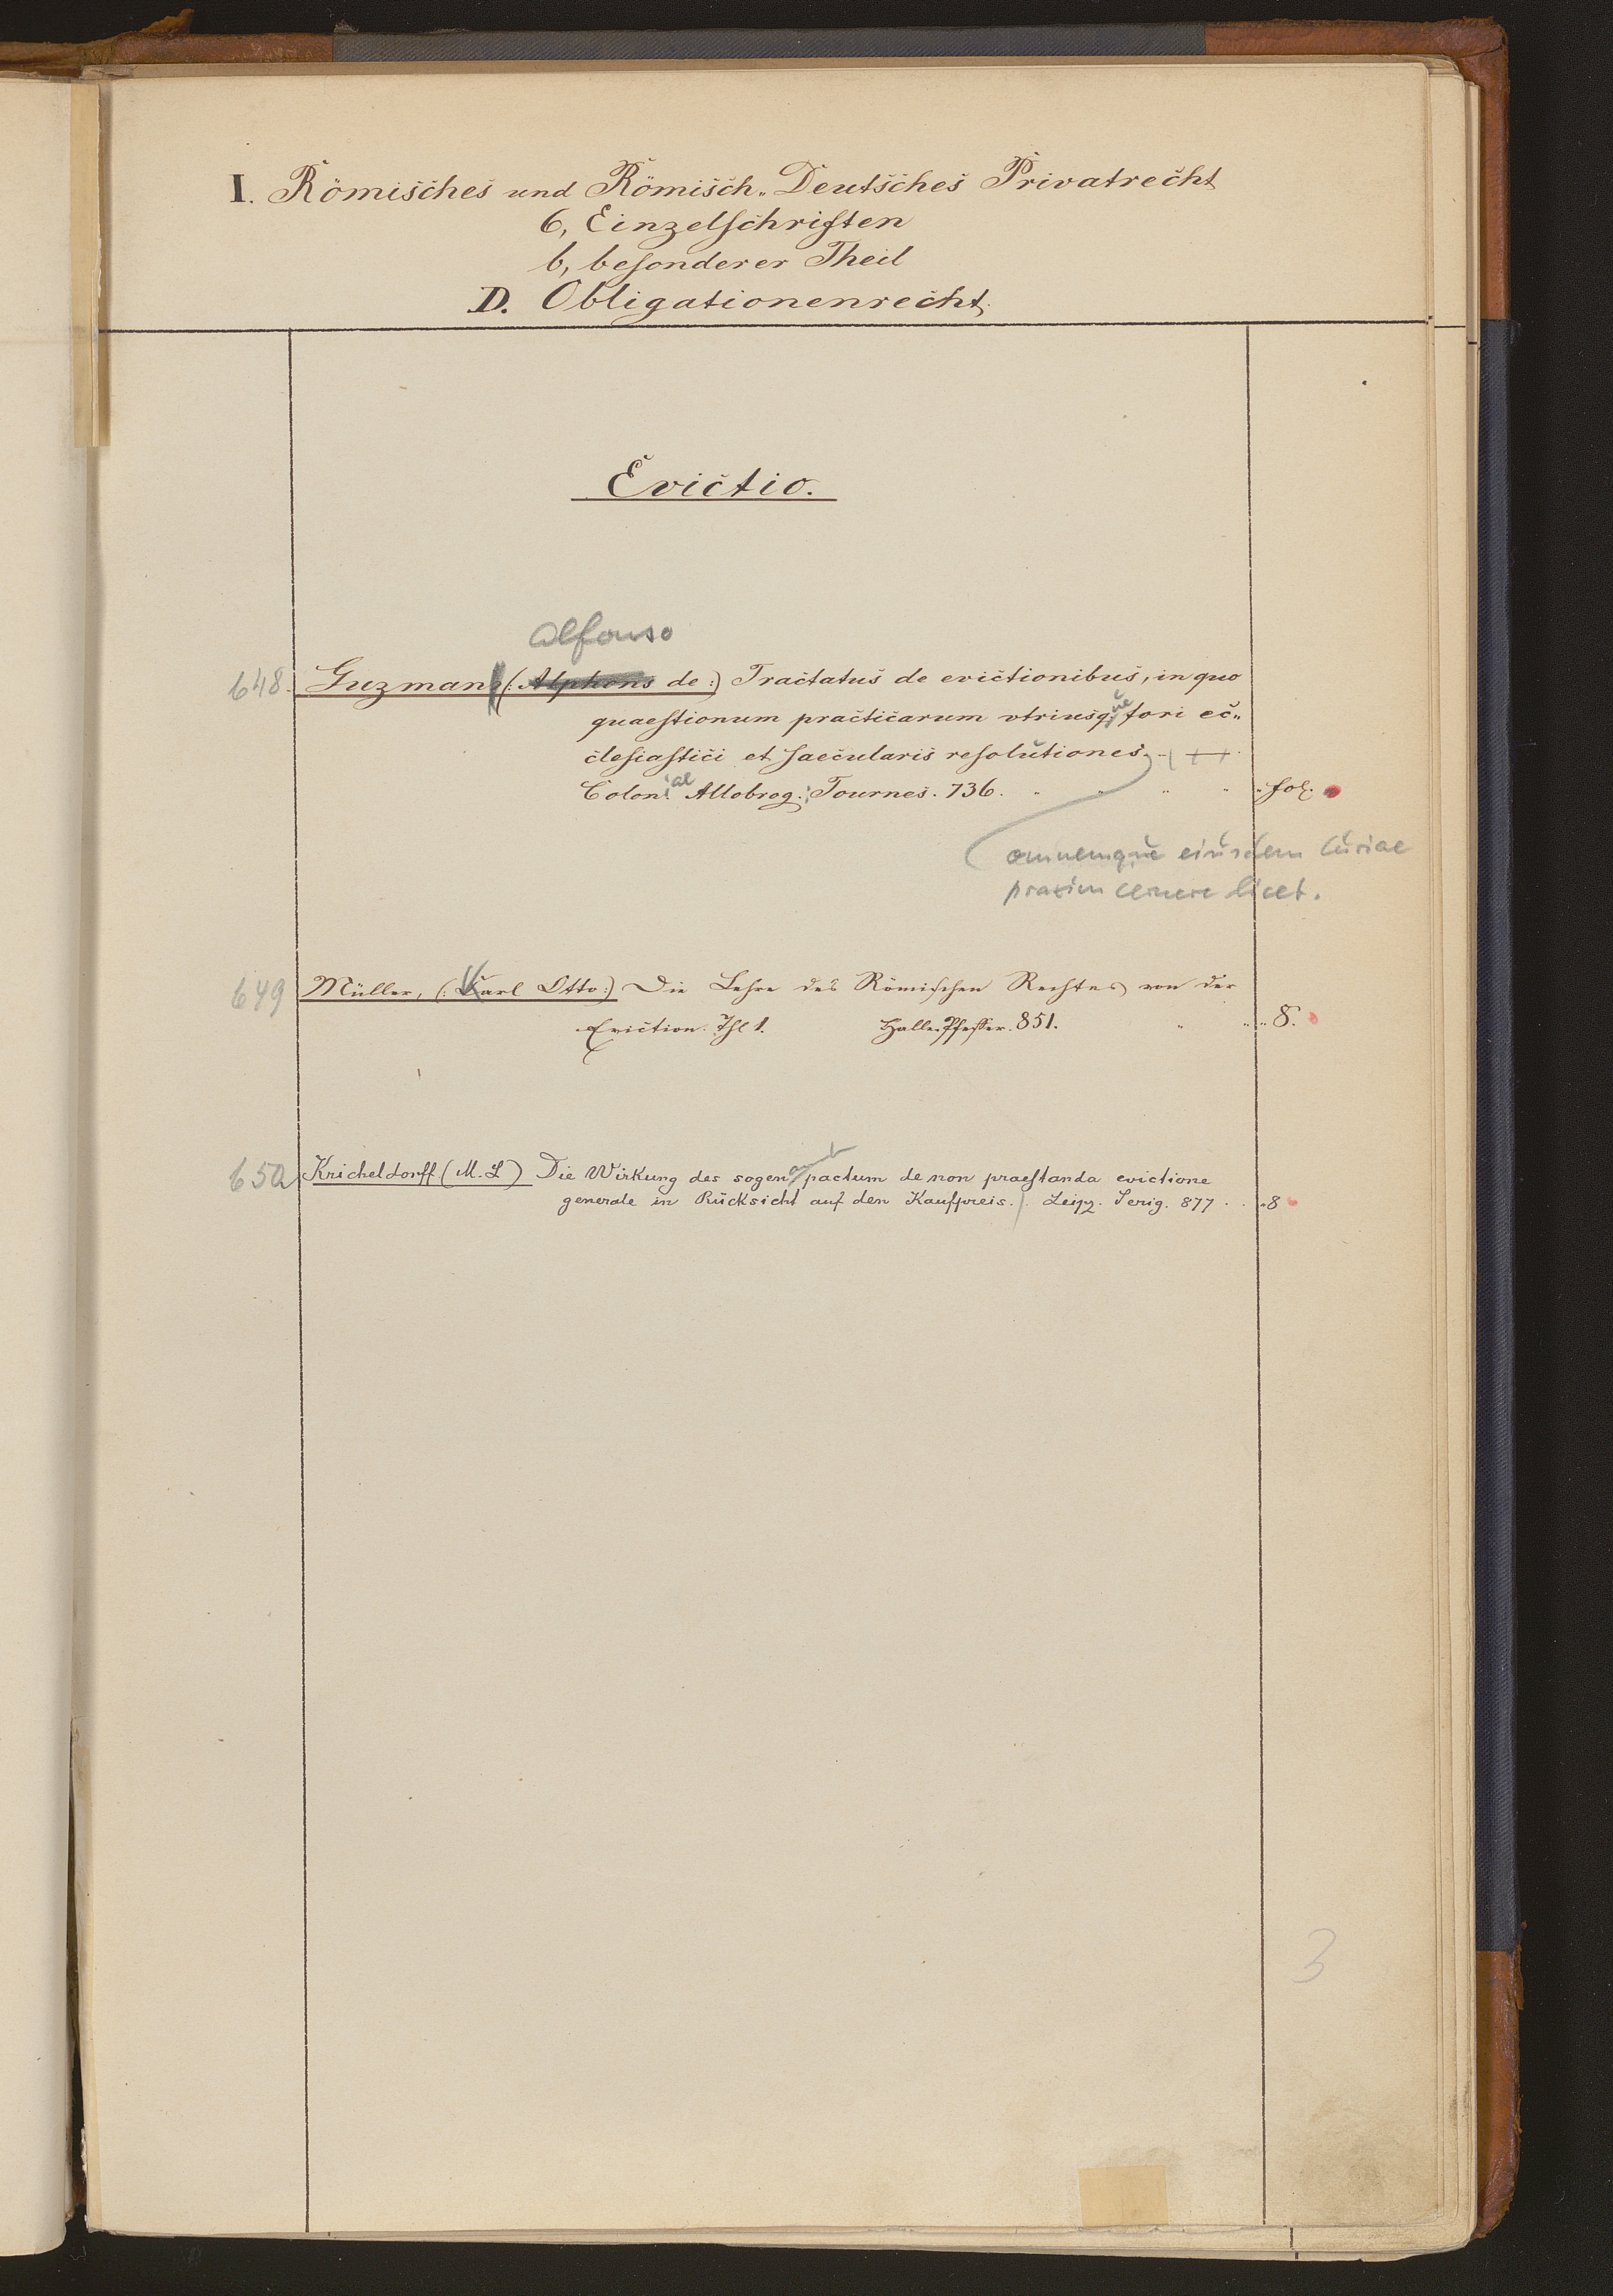 I. Römisches und Römisch-Deutsches Privatrecht
6, Einzelschriften
b, besonderer Theil
D. Obligationenrecht
Evictio.
Alfonso
648. Guzman, (: Alphons de :) Tractatus de evictionibus, in quo
quaestionum practicarum vtriusq;ue fori ec-
clesiastici et saecularis resolutiones
Colon.iae Allobrog.; Tournes. 736. " " " " " fol.
omnemque eiusdem Curiae
praxim cernere licet.
649 Müller, (: Karl Otto :) Die Lehre des Römischen Rechtes von der
Eviction. Thl 1. Halle. Pfeffer. 851. " " " 8.
650 Kricheldorff (M. L) Die Wirkung des sogenannt pactum de non praestanda evictione
generale in Rücksicht auf den Kaufpreis. Leipz. Serig. 877 . . . 8
3